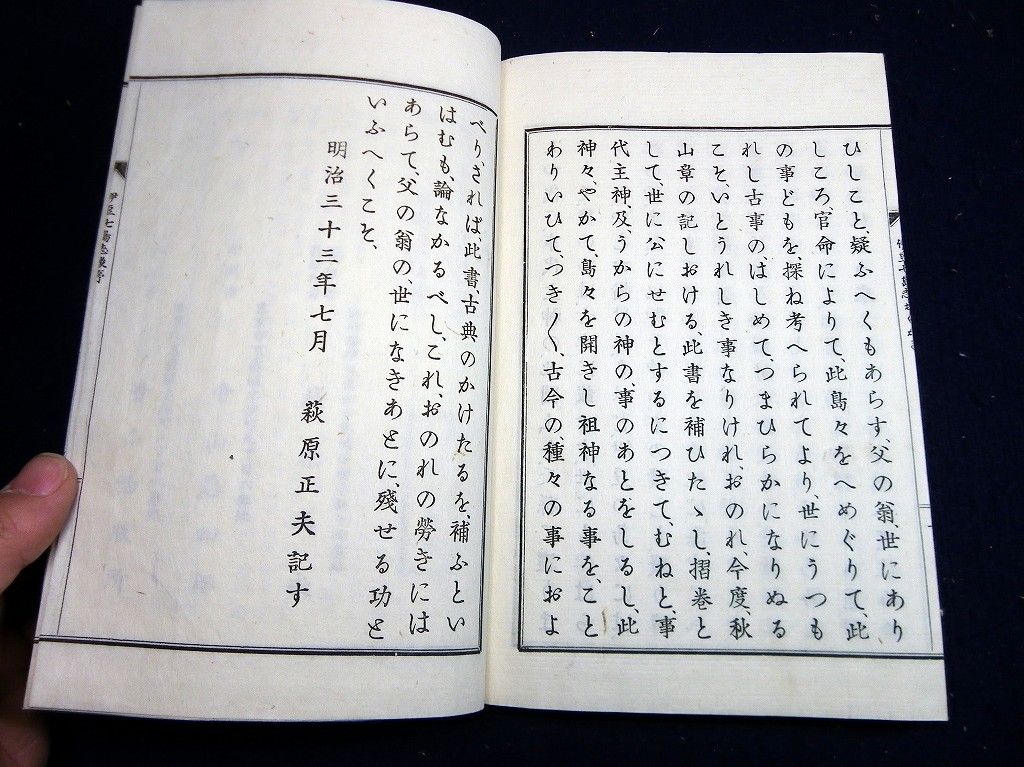 ひしこと、疑ふへくもあらす、父の翁世にあり
しころ、官命によりて、此島々をへめぐりて、此
の事どもを、探ね考へられてより、世にうつも
れし古事の、はしめて、つまひらかになりぬる
こそ、いとうれしき事なりけれ、おのれ、今度、秋
山章の記しおける、此書を補ひたゝし、摺巻と
して、世に公にせむとするにつきて、むねと、事
代主神、及、うからの神の、事のあとをしるし、此
神々、やかて、島々を開きし祖神なる事を、こと
わりいひて、つき〱、古今の、種々の事におよ
べり、されば、此書古典のかけたるを、補ふとい
はむも、論なかるべし、これ、おのれの勞きには
あらて、父の翁の、世になきあとに、殘せる功と
いふへくこそ、
明治三十三年七月　萩原正夫記す